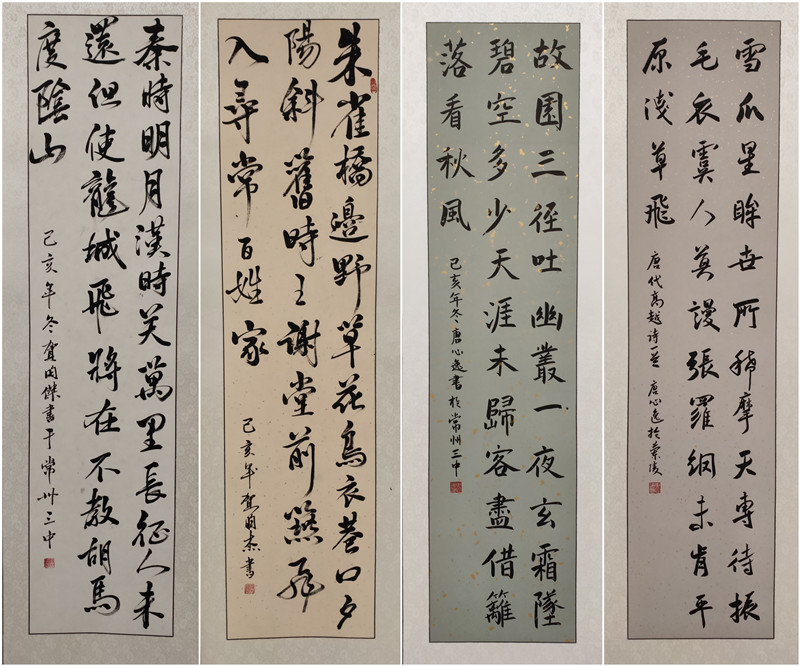 秦時明月漢時关萬里長征人未
還但使龍城飛將在不教胡馬
度陰山
己亥年冬賀傑書于常州三中
朱雀橋邊野草花烏衣巷口夕
陽斜舊時王謝堂前燕飛
入尋常百姓家
己亥年賀杰書
故園三径吐幽叢一夜玄霜墜
碧空多少天涯未歸客盡借籬
落看秋風
己亥年冬唐心逸書於常州三中
雪爪星眸世所稀摩天專待振
毛衣虞人莫謾張羅網未肯平
原淺草飛
唐代高越诗一首 唐心逸於蘭陵